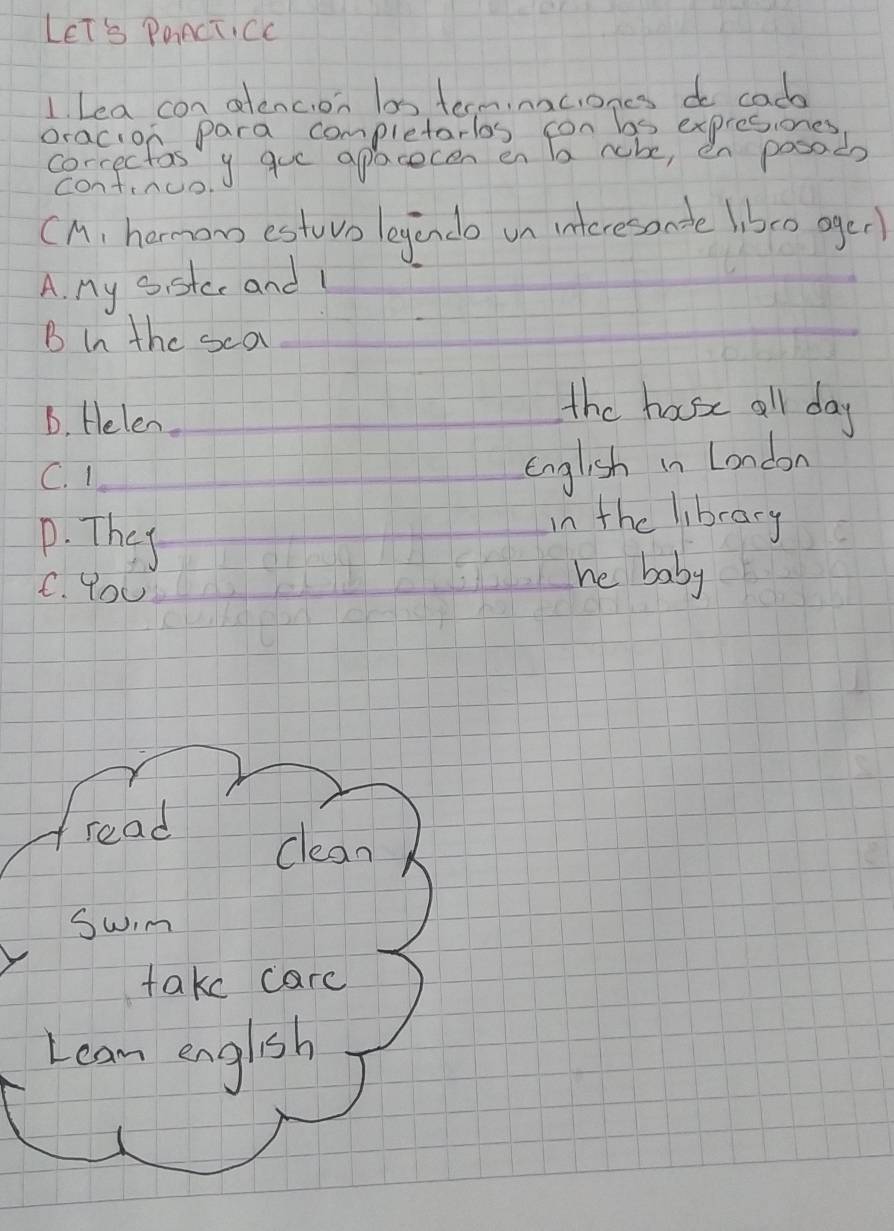 LET'S PRACTICE
1. Lea con atención las terminaciones de cada
oración para completarlas con las expresiones
correctas y que aparecen en la nube, en pasado
continuo.
(Mi hermano estuvo leyendo un interesante libro ayer)
A. My sister and I
B In the sea
B. Helen the house all day
C. I English in London
D. They in the library
E. You he baby
read
clean
swim
take care
Learn english